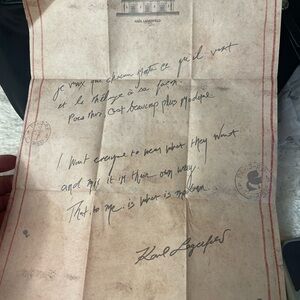 KARL LAGERFELD
je veux que chacun porte ce qu'il veut
et le mélange à sa façon.
Pour moi c'est beaucoup plus moderne
I want everyone to wear what they want
and mix it in their own way.
That, to me, is what is modern
Karl Lagerfeld